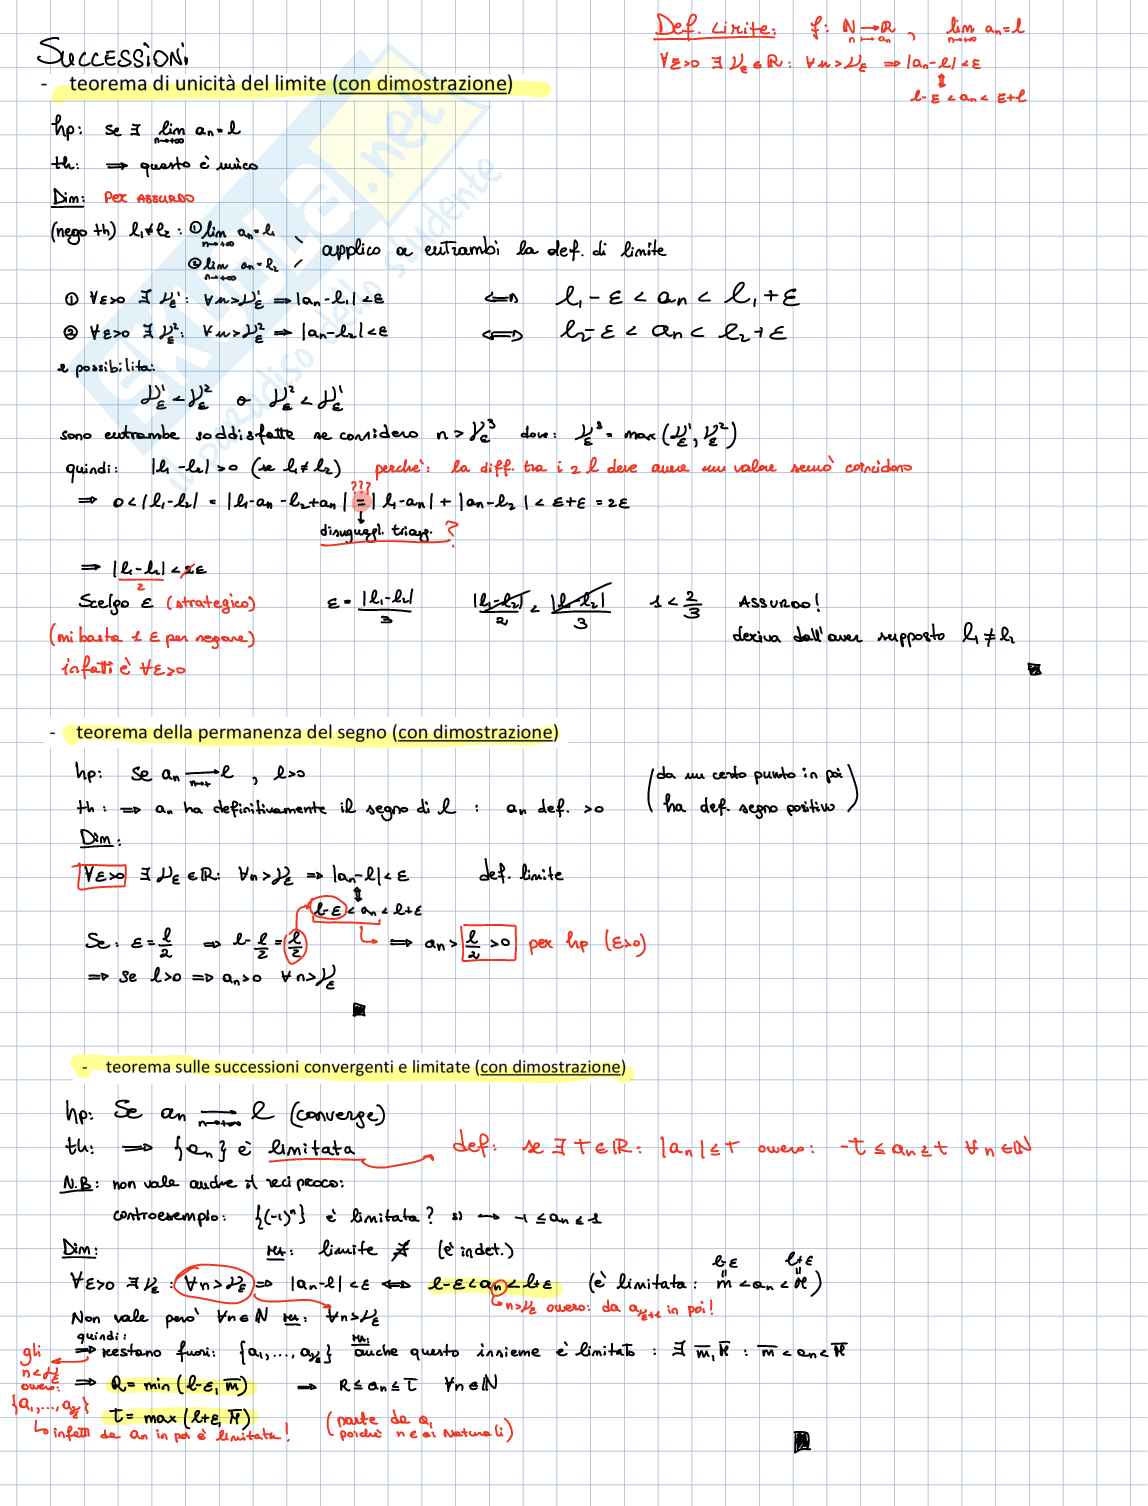 Def. Limite: f: N→R n↦an , lim n→+∞ an = l
∀ε>0 ∃ νε ∈ R: ∀n>νε ⇒ |an-l|<ε
⇕
l-ε < an < ε+l
SUCCESSIONI
- teorema di unicità del limite (con dimostrazione)
hp: se ∃ lim n→+∞ an = l
th: ⇒ questo è unico
Dim: PER ASSURDO
(nego th) l1≠l2 : ① lim n→+∞ an = l1
② lim n→+∞ an = l2
applico a entrambi la def. di limite
① ∀ε>0 ∃ νε¹: ∀n>νε¹ ⇒ |an-l1|<ε ⇔ l1-ε < an < l1+ε
② ∀ε>0 ∃ νε²: ∀n>νε² ⇒ |an-l2|<ε ⇔ l2-ε < an < l2+ε
2 possibilità:
νε¹ < νε² o νε² < νε¹
sono entrambe soddisfatte se considero n > νε³ dove: νε³ = max(νε¹, νε²)
quindi: |l1-l2| > 0 (se l1≠l2) perchè: la diff. tra i 2 l deve avere un valore sennò coincidono
???
⇒ 0 < |l1-l2| = |l1-an-l2+an| = |l1-an| + |an-l2| < ε+ε = 2ε
↓
disuguagl. triang. ?
⇒ |l1-l2|/2 < 2ε
Scelgo ε (strategico) ε = |l1-l2|/3 |l1-l2|/2 < |l1-l2|/3 1 < 2/3 ASSURDO!
(mi basta 1 ε per negare) deriva dall'aver supposto l1≠l2
infatti è ∀ε>0
- teorema della permanenza del segno (con dimostrazione)
hp: Se an → l n→+ , l>0 (da un certo punto in poi
th: ⇒ an ha definitivamente il segno di l : an def. >0 ha def. segno positivo)
Dim:
∀ε>0 ∃ νε ∈ R: ∀n>νε ⇒ |an-l|<ε def. limite
⇕
l-ε < an < l+ε
Se: ε = l/2 ⇒ l - l/2 = l/2 ⇒ an > l/2 > 0 per hp (ε>0)
⇒ se l>0 ⇒ an>0 ∀n>νε
- teorema sulle successioni convergenti e limitate (con dimostrazione)
hp: Se an → l n→+∞ (converge)
th: ⇒ {an} è limitata def: se ∃ T∈R: |an| ≤ T ovvero: -T ≤ an ≥ t ∀n∈N
N.B: non vale anche il reciproco:
controesempio: {(-1)ⁿ} è limitata? sì → -1 ≤ an ≤ 1
Dim: MA: limite ∄ (è indet.)
l-ε l+ε
∀ε>0 ∃ νε : ∀n>νε ⇒ |an-l|<ε ⇔ l-ε<an<l+ε (è limitata: m < an < M)
n>νε ovvero: da aνε+1 in poi!
Non vale però ∀n∈N MA: ∀n>νε
quindi:
⇒ restano fuori: {a1,...,aνε} MA: anche questo insieme è limitato : ∃ m̅, M̅ : m̅ < an < M̅
gli n<νε ovvero: {a1,...,aνε}
⇒ R = min (l-ε, m̅) → R ≤ an ≤ T ∀n∈N
T = max (l+ε, M̅) (parte da a1 poichè n è ai Naturali)
infatti da an in poi è limitata!
SKUOLA.net
il paradiso dello studente